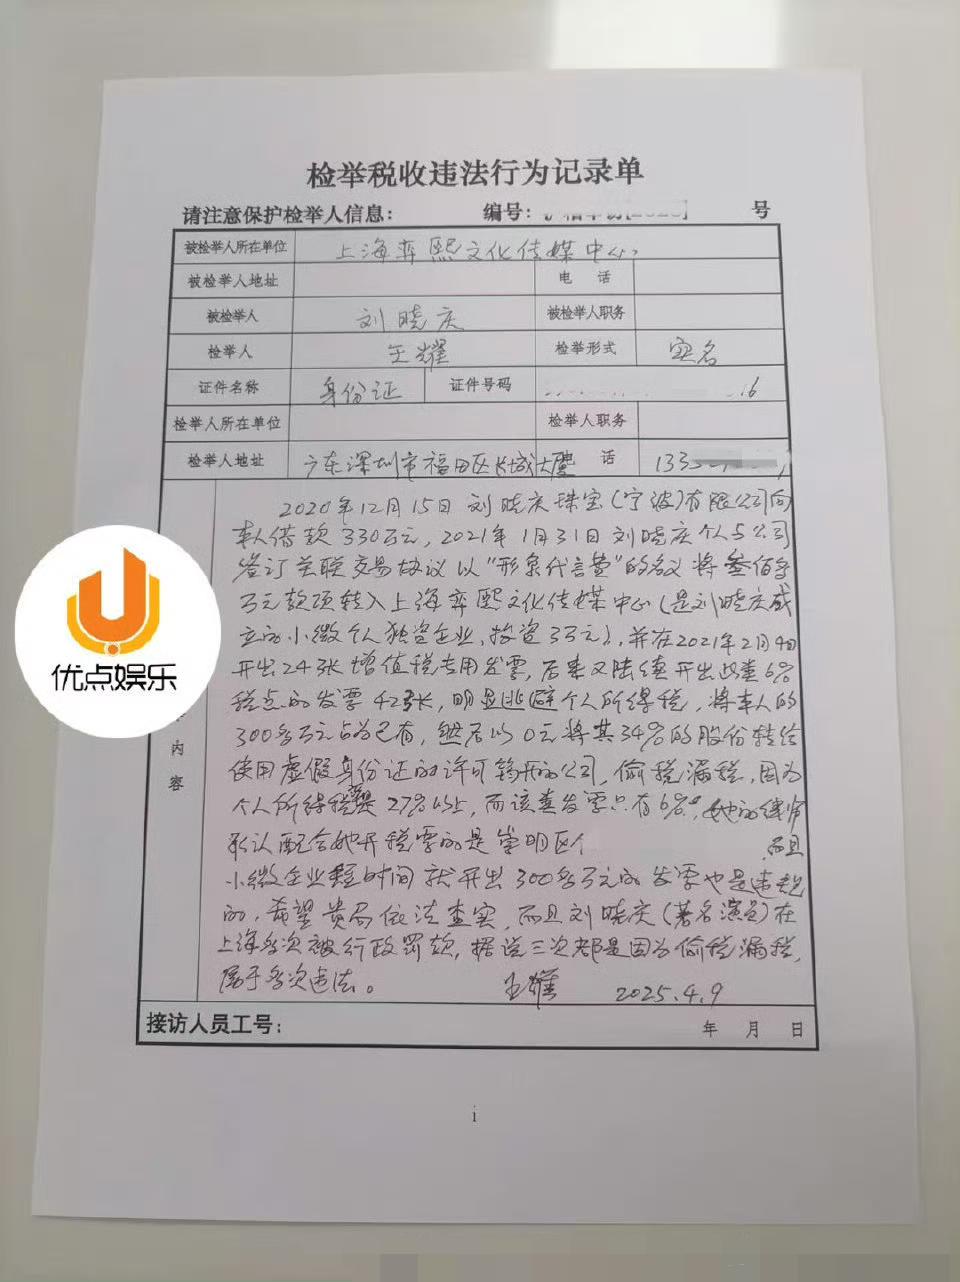 检举税收违法行为记录单
请注意保护检举人信息： 编号： 号
被检举人所在单位 上海弈熙文化传媒中心
被检举人地址 电 话
被检举人 刘晓庆 被检举人职务
检举人 王耀 检举形式 实名
证件名称 身份证 证件号码 16
检举人所在单位 检举人职务
检举人地址 广东深圳市福田区长城大厦 话 133
2020年12月15日刘晓庆珠宝(宁波)有限公司向
本人借款330万元，2021年1月31日刘晓庆个人与公司
签订关联交易协议以"形象代言费"的名义将叁佰多
万元款项转入上海弈熙文化传媒中心(是刘晓庆成
立的小微个人独资企业，投资3万元)，并在2021年2月4日
开出24张增值税专用发票，后来又陆续开出此类6%
税点的发票42张，明显逃避个人所得税，将本人的
300多万元占为己有，然后以0元将其34%的股份转给
使用虚假身份证的许可筠开的公司，偷税漏税，因为
个人所得税要是27%以上，而该类发票只有6%，她的律师
承认配合她开税票的是崇明区个 而且
小微企业短时间就开出300多万元的发票也是违规
的，希望贵局依法查实，而且刘晓庆(著名演员)在
上海多次被行政罚款，据说三次都是因为偷税漏税，
属于多次违法。 王耀 2025.4.9
内
容
接访人员工号： 年 月 日
i
优点娱乐